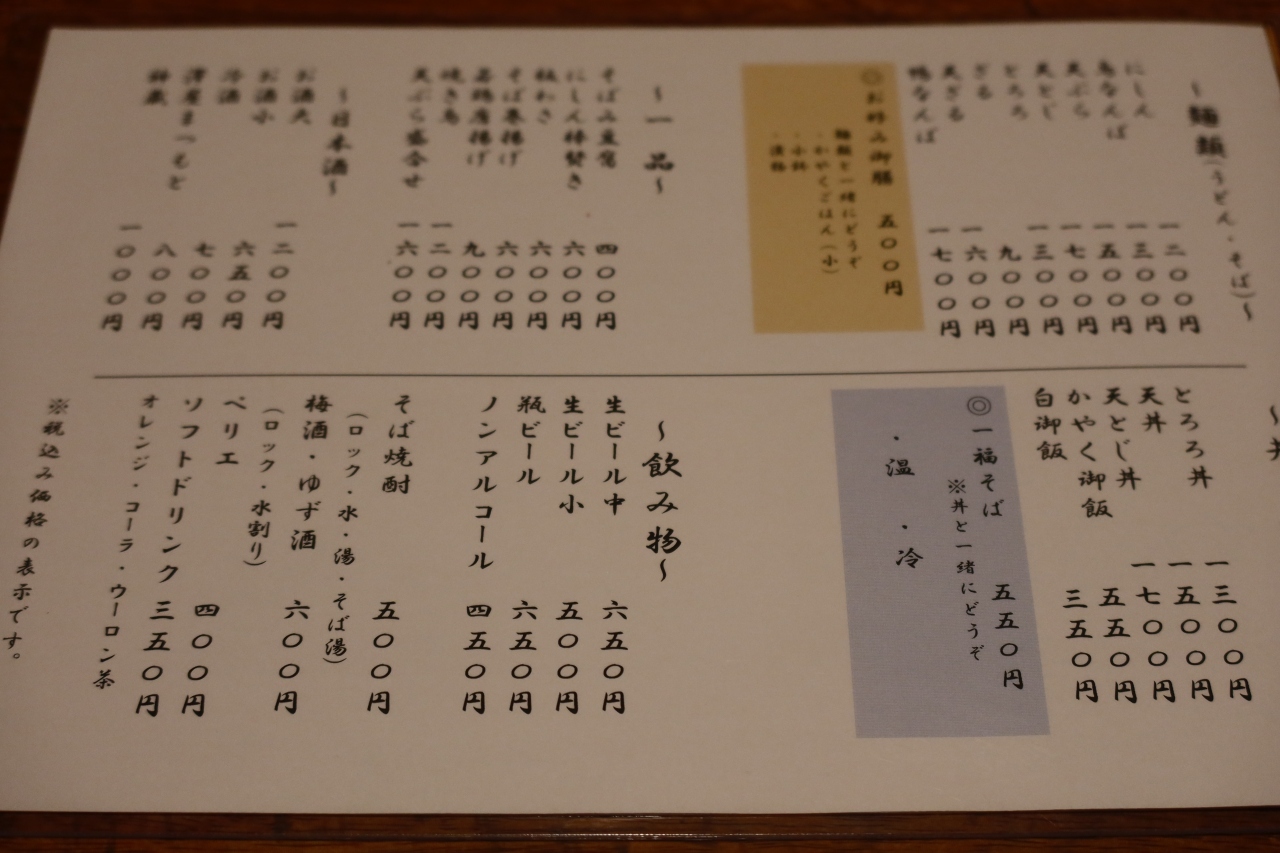 ～麺類(うどん・そば)～
にしん 一二〇〇円
鳥なんば 一三〇〇円
天ぷら 一五〇〇円
天とじ 一七〇〇円
とろろ 一三〇〇円
ざる 九〇〇円
天ざる 一六〇〇円
鴨なんば 一七〇〇円
◎お好み御膳 五〇〇円
麺類と一緒にどうぞ
・かやくごはん(小)
・小鉢
・漬物
～一品～
そば豆腐 四〇〇円
にしん棒煮き 一六〇〇円
板わさ 六〇〇円
そば巻揚げ 六〇〇円
若鶏唐揚げ 九〇〇円
焼き鳥 一二〇〇円
天ぷら盛合せ 一六〇〇円
～日本酒～
お酒大 一二〇〇円
お酒小 六五〇円
冷酒 七〇〇円
澤屋まつもと 八〇〇円
一〇〇〇円
～丼
とろろ丼 一三〇〇円
天丼 一五〇〇円
天とじ丼 一七〇〇円
かやく御飯 五五〇円
白御飯 三五〇円
◎一福そば 五五〇円
※丼と一緒にどうぞ
・温 ・冷
～飲み物～
生ビール中 六五〇円
生ビール小 五〇〇円
瓶ビール 六五〇円
ノンアルコール 四五〇円
そば焼酎 五〇〇円
(ロック・水・湯・そば湯)
梅酒・ゆず酒 六〇〇円
(ロック・水割り)
ペリエ 四〇〇円
ソフトドリンク 三五〇円
オレンジ・コーラ・ウーロン茶
※税込み価格の表示です。